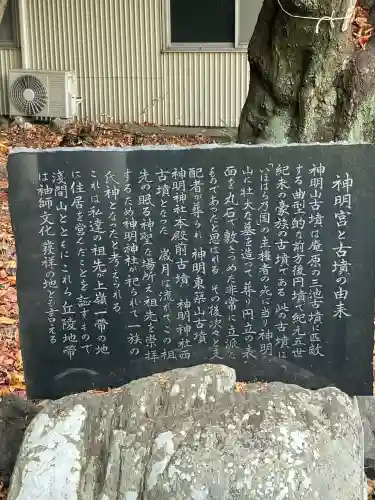 神明宮と古墳の由来
神明山古墳は庵原の三池古墳に匹敵
する曲型的前方後円墳で紀元五世
紀末の豪族の古墳である 此の古墳は
「いほはら乃国の主権者の死に当り神明
山に壮大な墓を造って葬り円立の表
面を丸石で敷きつめた非常に立派な
ものであったと思はれる その後次々と支
配者が葬られ 神明東築山古墳
神明神社本殿前古墳 神明神社西
古墳となった 歳月は流れてこの祖
先の眠る神聖な場所え祖先を崇拝
するため神明神社が祀られて一族の
氏神となったと考えられる
これは私達の祖先が上嶺一帯の地
に住居を営んだことをも証すもので
浅間山とともにこれら丘陵地帯
は袖師文化発祥の地とも言える